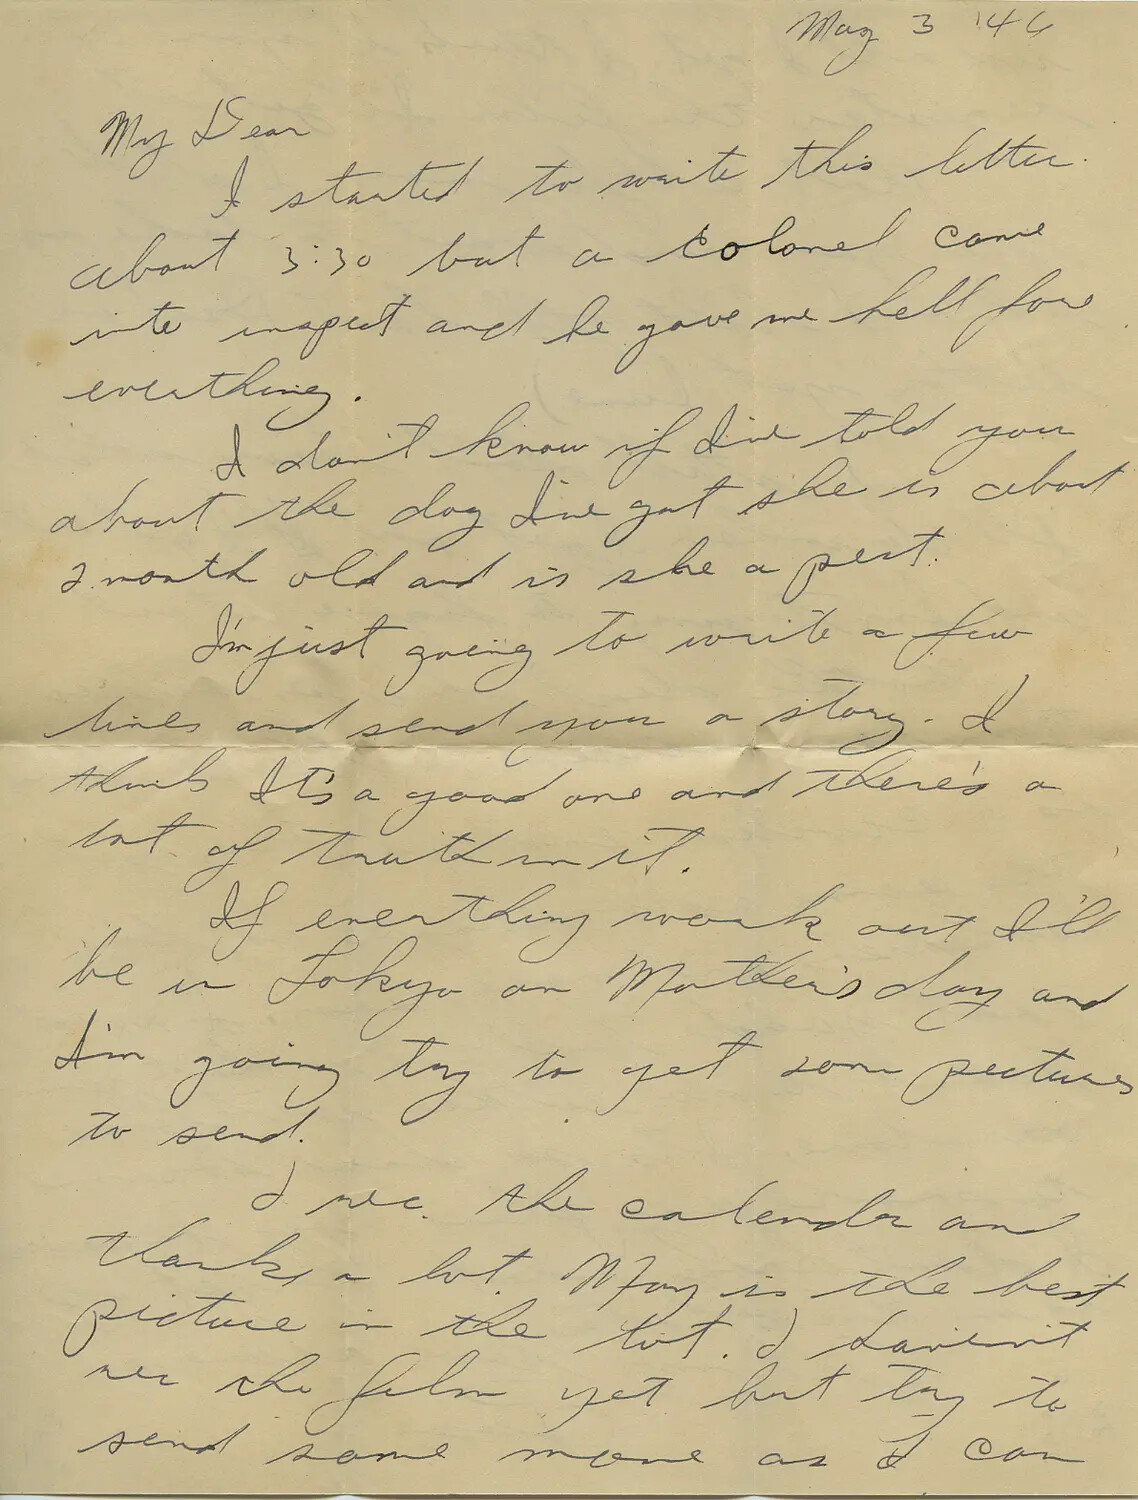 May 3 '46
My Dear
I started to write this letter
about 3:30 but a colonel came
into inspect and he gave me hell for
everthing.
I don't know if I've told you
about the dog I've got she is about
2 month old and is she a pest.
I'm just going to write a few
lines and send you a story. I
think It's a good one and there's a
lot of truth in it.
If everthing work out I'll
be in Tokyo on Mother's day and
I'm going try to get som pictures
to send.
I rec. the calender and
thanks a lot. May is the best
picture in the lot. I haven't
rec the film yet but try to
send some more as I can